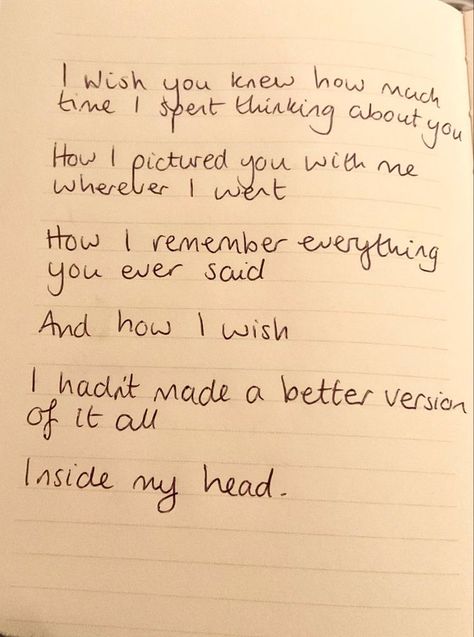 I wish you knew how much
time I spent thinking about you
How I pictured you with me
wherever I went
How I remember everything
you ever said
And how I wish
I hadn't made a better version
of it all
Inside my head.